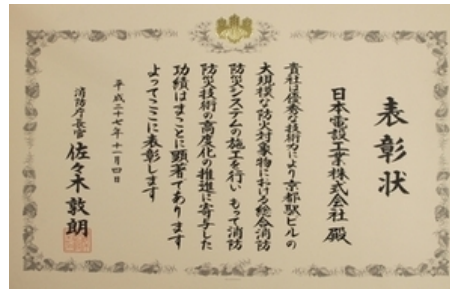 表彰状
日本電設工業株式会社 殿
貴社は優秀な技術力により京都駅ビルの
大規模な防火対象物における総合消防
防災システムの施工を行い もって消防
防災技術の高度化の推進に寄与した
功績はまことに顕著であります
よってここに表彰します
平成二十七年十一月四日
消防庁長官 佐々木敦朗